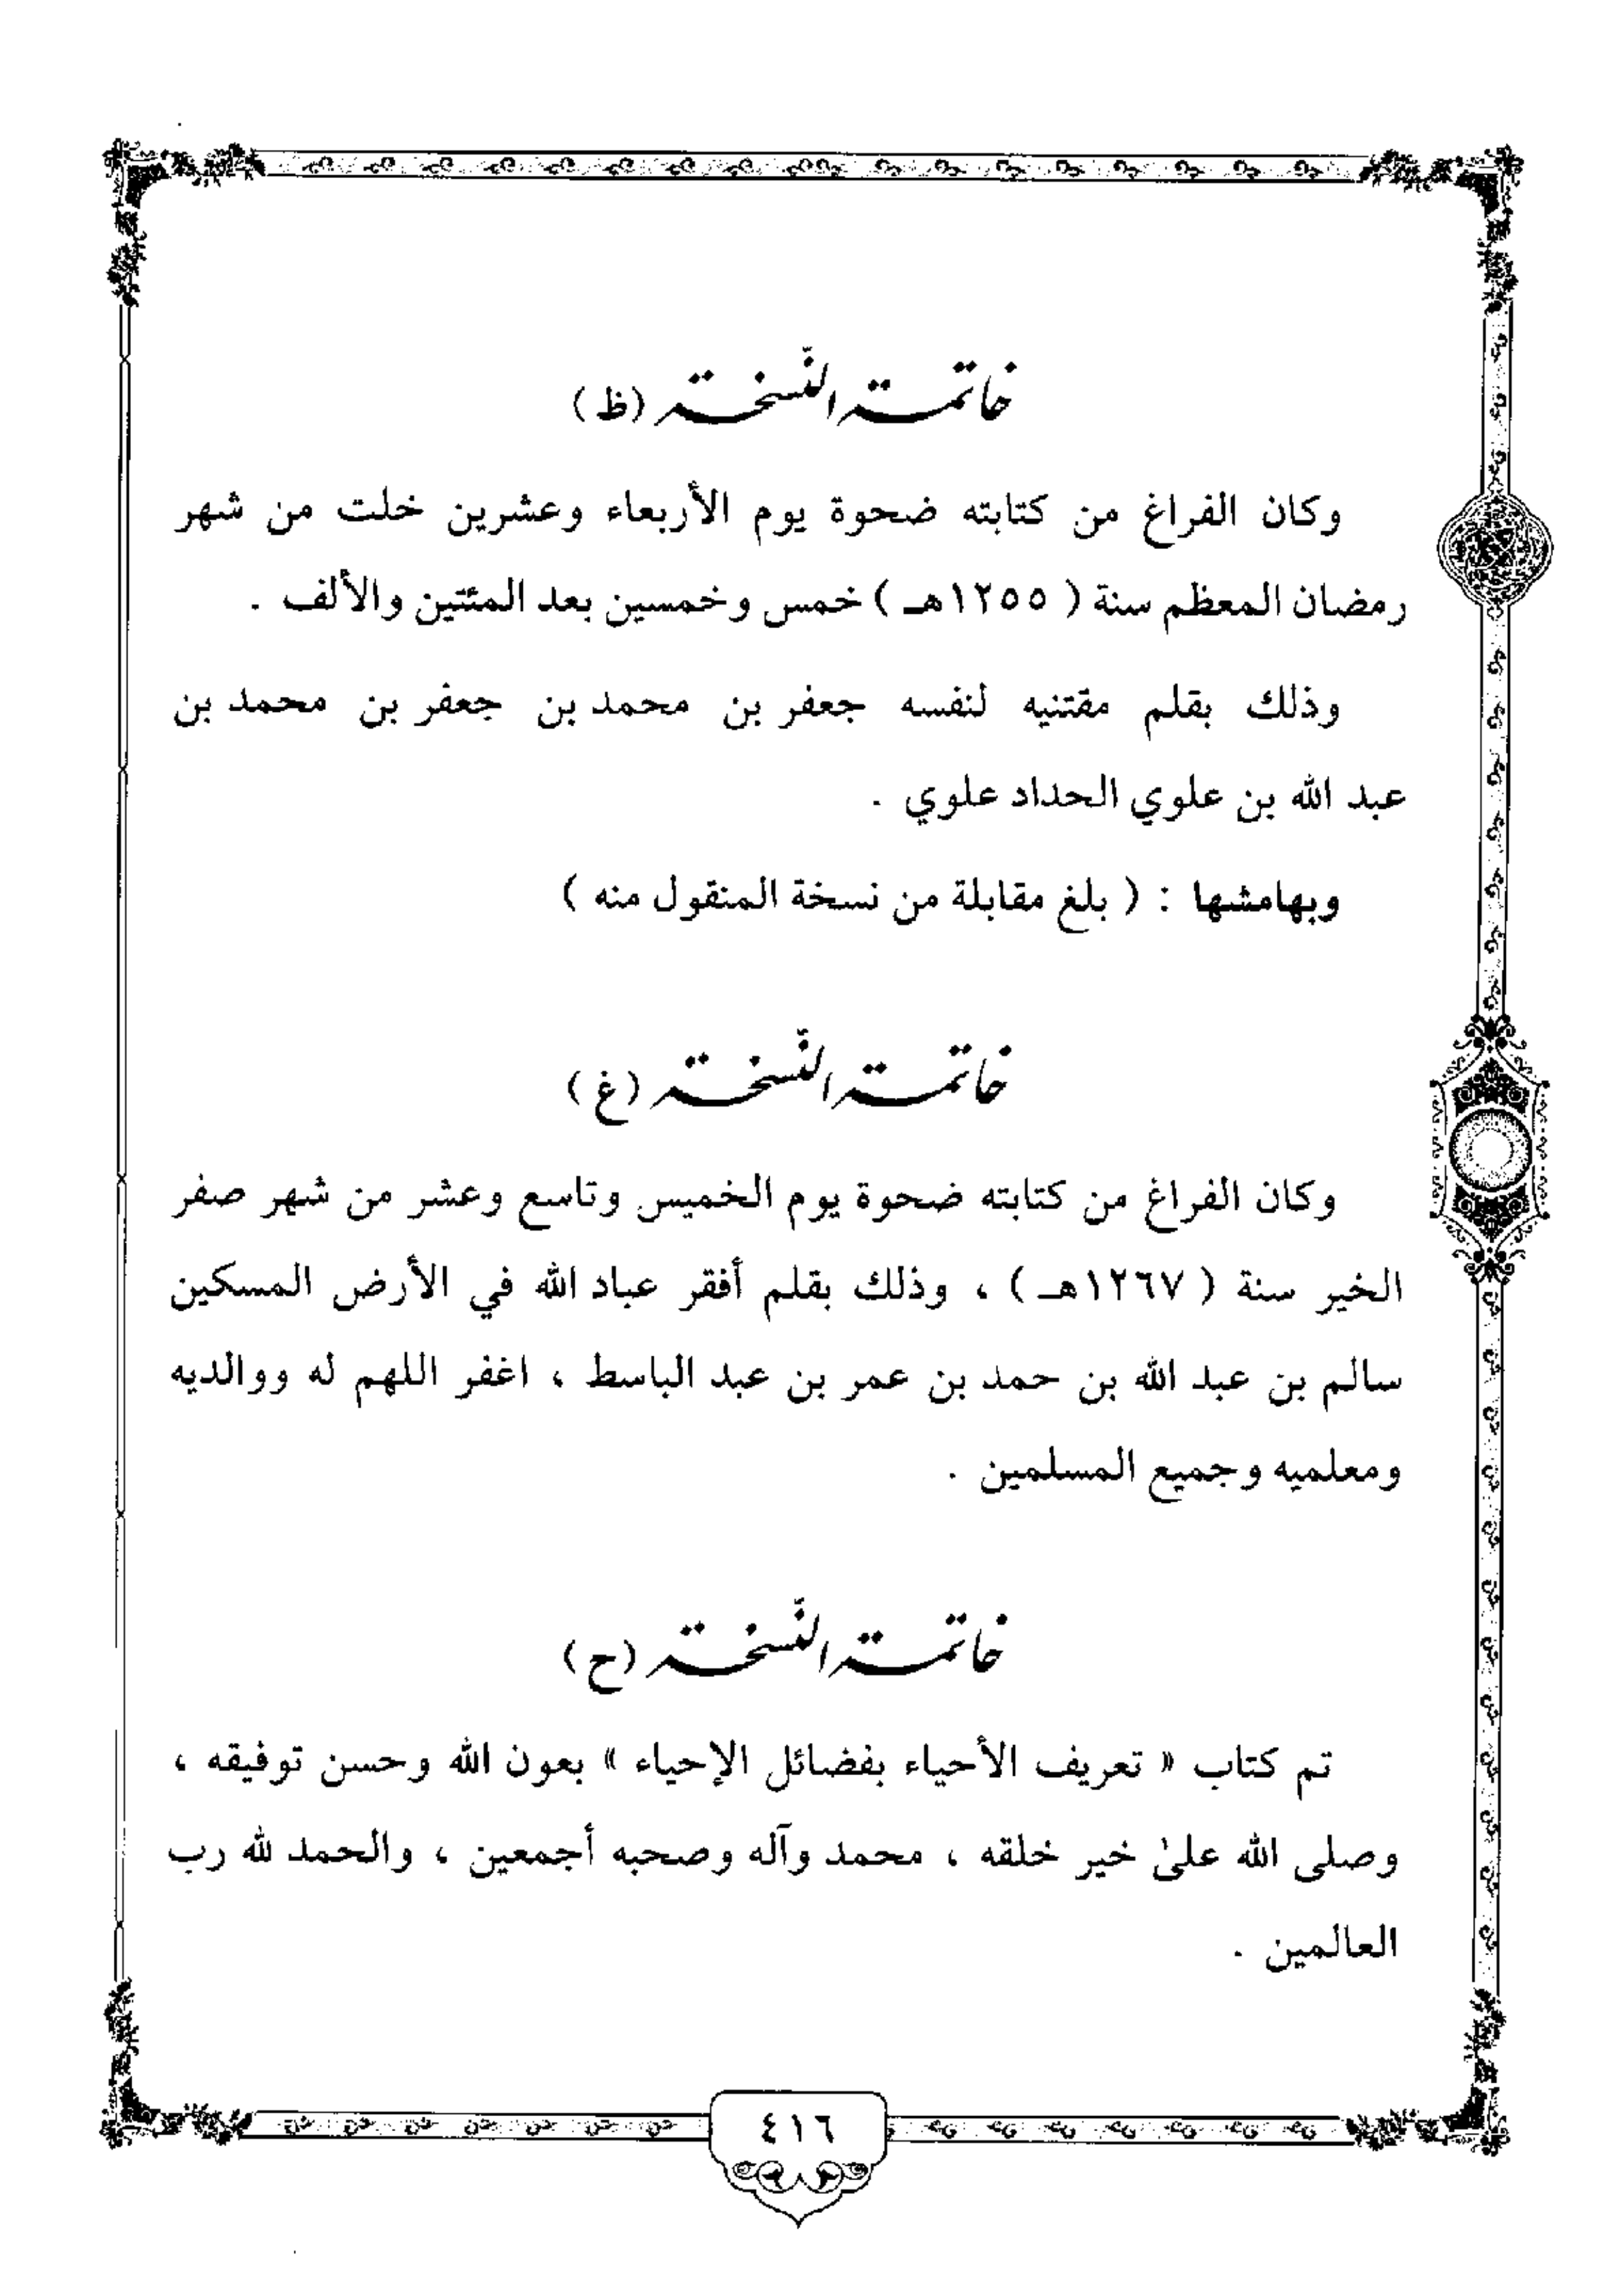 خاتمة النّسخة (ظ)
وكان الفراغ من كتابته ضحوة يوم الأربعاء وعشرين خلت من شهر
رمضان المعظم سنة ( ١٢٥٥هـ ) خمس وخمسين بعد المئتين والألف .
وذلك بقلم مقتنيه لنفسه جعفر بن محمد بن جعفر بن محمد بن
عبد الله بن علوي الحداد علوي .
وبهامشها : ( بلغ مقابلة من نسخة المنقول منه )
خاتمة النّسخة (غ)
وكان الفراغ من كتابته ضحوة يوم الخميس وتاسع وعشر من شهر صفر
الخير سنة ( ١٢٦٧هـ ) ، وذلك بقلم أفقر عباد الله في الأرض المسكين
سالم بن عبد الله بن حمد بن عمر بن عبد الباسط ، اغفر اللهم له ووالديه
ومعلميه وجميع المسلمين .
خاتمة النّسخة (ح)
تم كتاب « تعريف الأحياء بفضائل الإحياء » بعون الله وحسن توفيقه ،
وصلى الله علىٰ خير خلقه ، محمد وآله وصحبه أجمعين ، والحمد لله رب
العالمين .
٤١٦